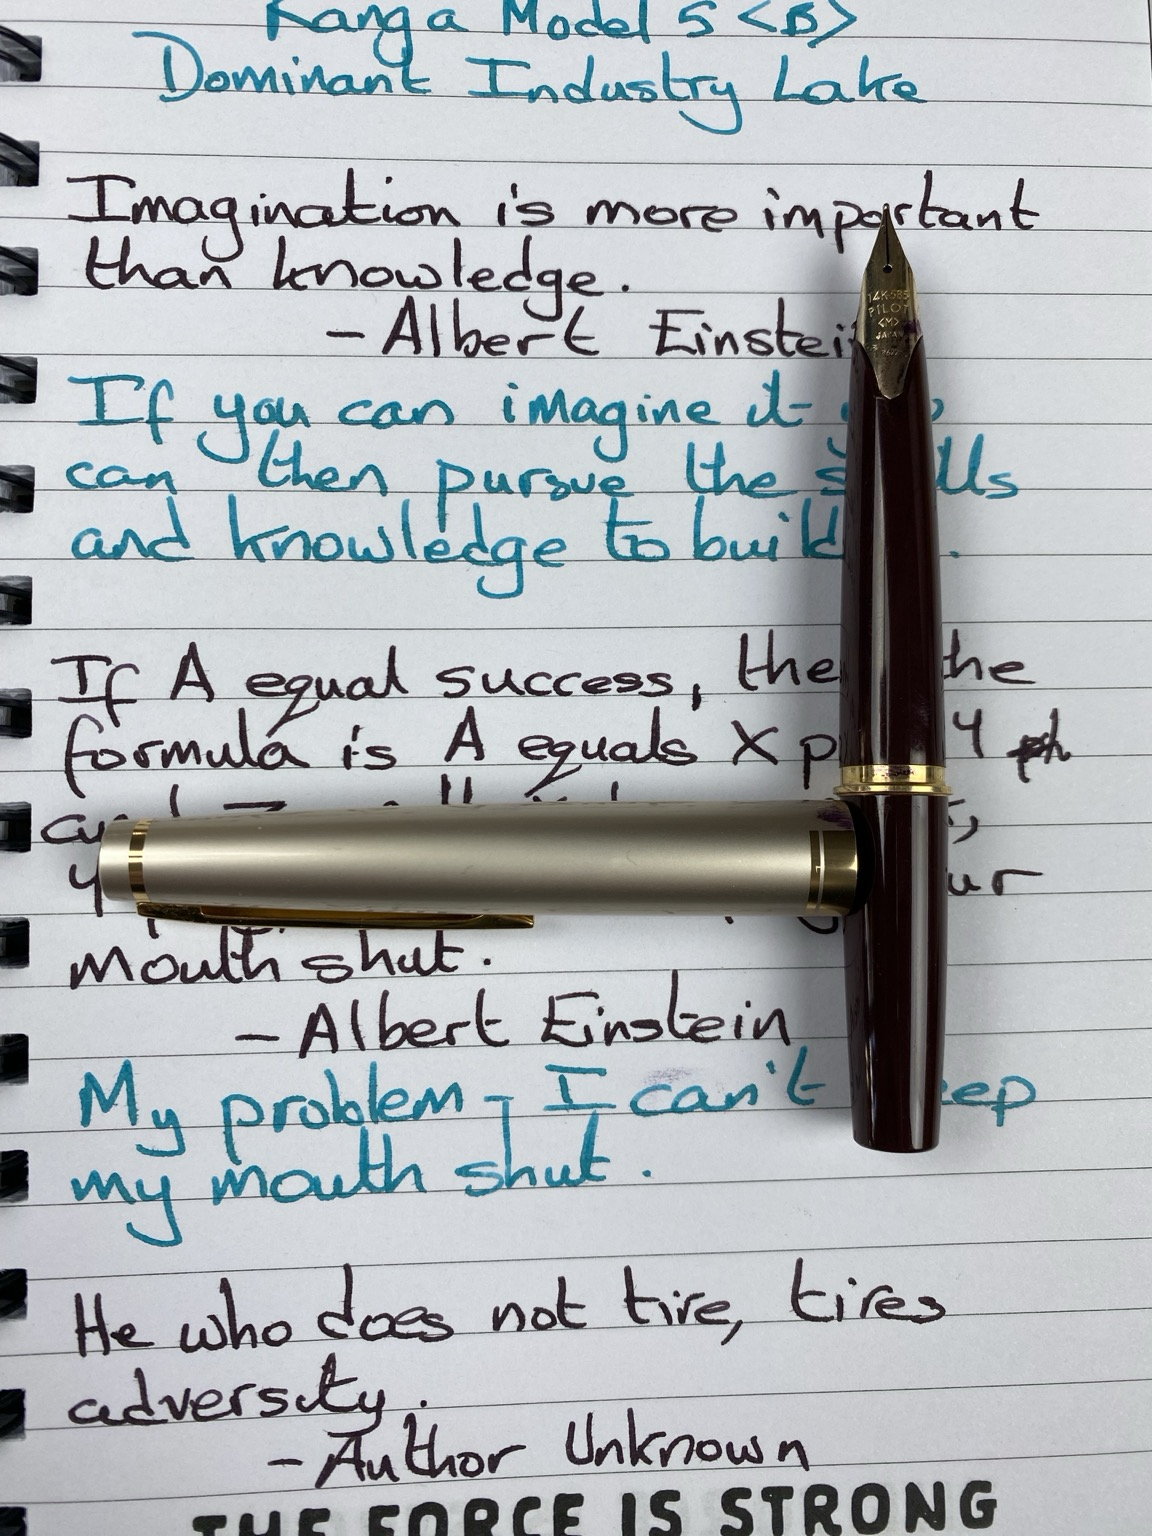 Kanga Model 5 <B>
Dominant Industry Lake
Imagination is more important
than knowledge.
- Albert Einstein
If you can imagine it
can then pursue the
and knowledge to build .
If A equal success, the
formula is A equals X
mouth shut.
- Albert Einstein
My problem - I can't
my mouth shut.
He who does not tire, tires
adversity.
- Author Unknown
THE FORCE IS STRONG
14K-585
PILOT
<M>
JAPAN